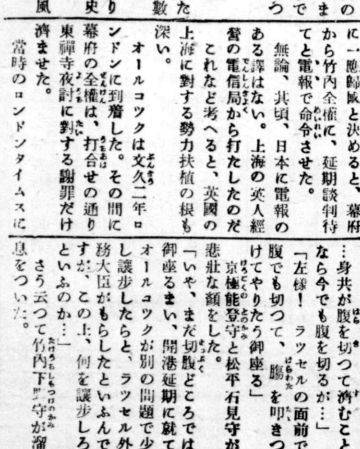 まの
で
つ
た
数
り
史
風
に一應歸國と決めると、幕府
から竹内全權に、延期談判待
てと電報で命令させた。
無論、其頃、日本に電報の
ある譯はない。上海の英人經
營の電信局から打たしたのだ
これなど考へると、英國の
上海に對する勢力扶植の根も
深い。
オールコツクは文久二年ロ
ンドンに到着した。その間に
幕府の全權は、打合せの通り
東禪寺夜討に對する謝罪だけ
濟ませた。
當時のロンドンタイムスに
…身共が切つて濟むこと
なら今でも腹を切るが…」
「左樣！ ラツセルの面前で
腹でも切つて、腸を叩きつ
けてやりたう御座る」
京極能登守と松平石見守が
悲壯な顏をした。
「いや、まだ切腹どころでは
御座るまい、開港延期に就て
オールコツクが別の問題で少
し讓歩したらと、ラツセル外
務大臣がもらしたといふんで
すが、この上、何を讓歩しろ
といふのか…」
さう云つて竹内下野守が溜
息をついた。